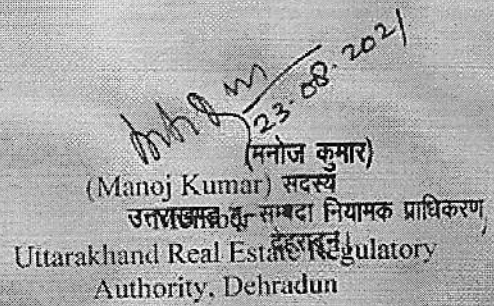 23.08.2021
(मनोज कुमार)
(Manoj Kumar) सदस्य
उत्तराखण्ड भू-सम्पदा नियामक प्राधिकरण,
देहरादून।
Uttarakhand Real Estate Regulatory
Authority, Dehradun